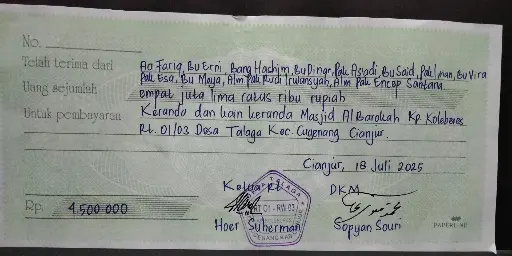 No.
Telah terima dari Ao Fariq, Bu Erni, Bang Hashim, Bu Dinar, Pak Asyadi, Bu Said, Pak Iman, Bu Vira
Pak Esa, Bu Maya, Alm Pak Rudi Irwansyah, Alm Pak Encep Santana.
Uang sejumlah empat juta lima ratus ribu rupiah
Untuk pembayaran Keranda dan kain keranda Masjid Al Barokah Kp Koleberes
Rt. 01/03 Desa Talaga Kec. Cugenang Cianjur.
Cianjur, 18 Juli 2025
Ketua Rt DKM
TALAGA
RT 01 - RW 03
Rp. 4.500.000
Hoer Suherman Sopyan Souri
PAPERLINE